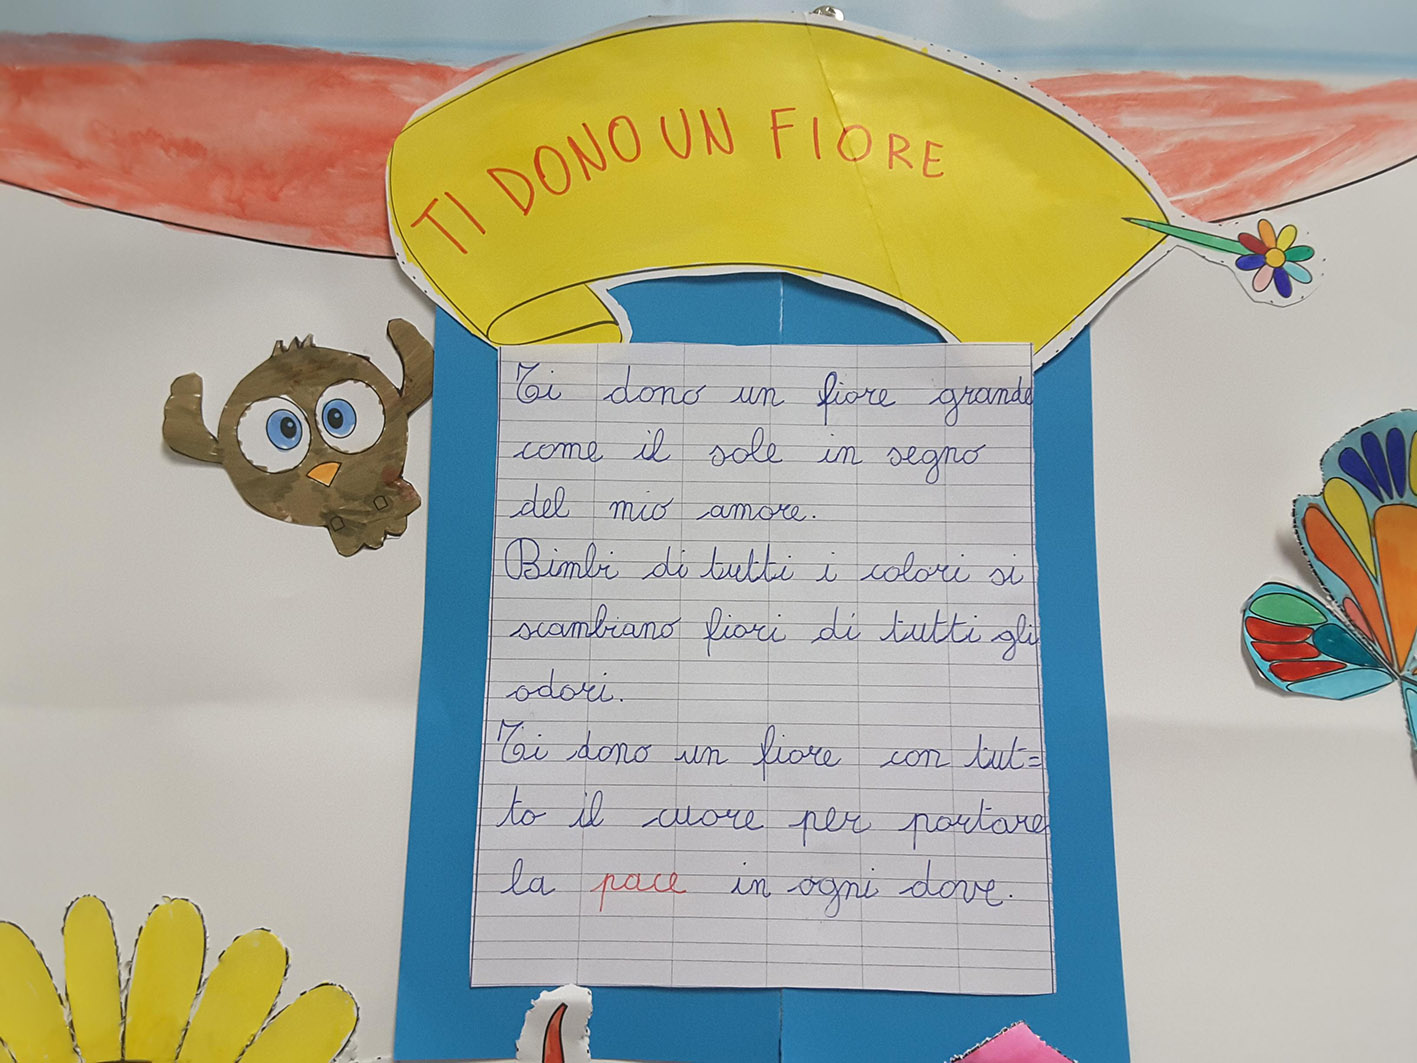 TI DONO UN FIORE
Ti dono un fiore grande
come il sole in segno
del mio amore.
Bimbi di tutti i colori si
scambiano fiori di tutti gli
odori.
Ti dono un fiore con tut=
to il cuore per portare
la pace in ogni dove.